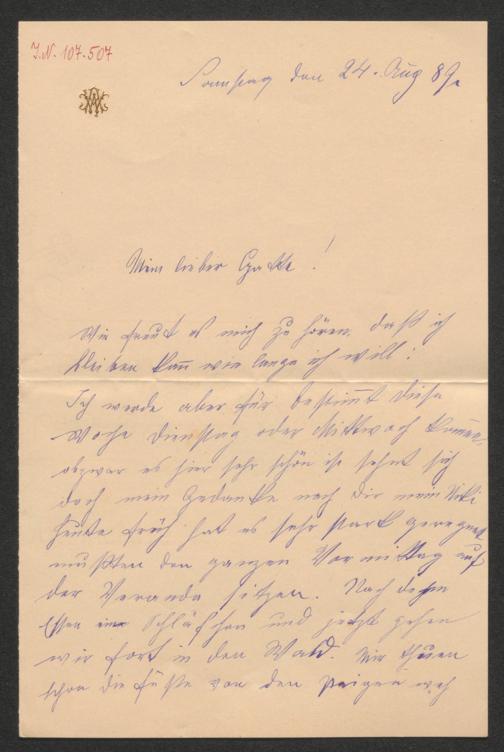 J.N. 107.507
Sonntag den 24. Aug 89.
Mein lieber Gatte!
Wie freut es mich zu hören, daß ich
bleiben kan̄ wie lange ich will:
Ich werde aber für bestim̄t diese
Woche Dienstag oder Mittwoch kom̄en,
obzwar es hier sehr schön ist sehnt sich
doch mein Gedanke nach Dir mein
heute früh hat es sehr stark geregnet
mußten den ganzen Vormittag auf
der Veranda sitzen. Nach dem
Essen ein Schläfchen und jetzt gehen
wir fort in den Wald. Mir thuen
schon die Füße von den Steigen weh